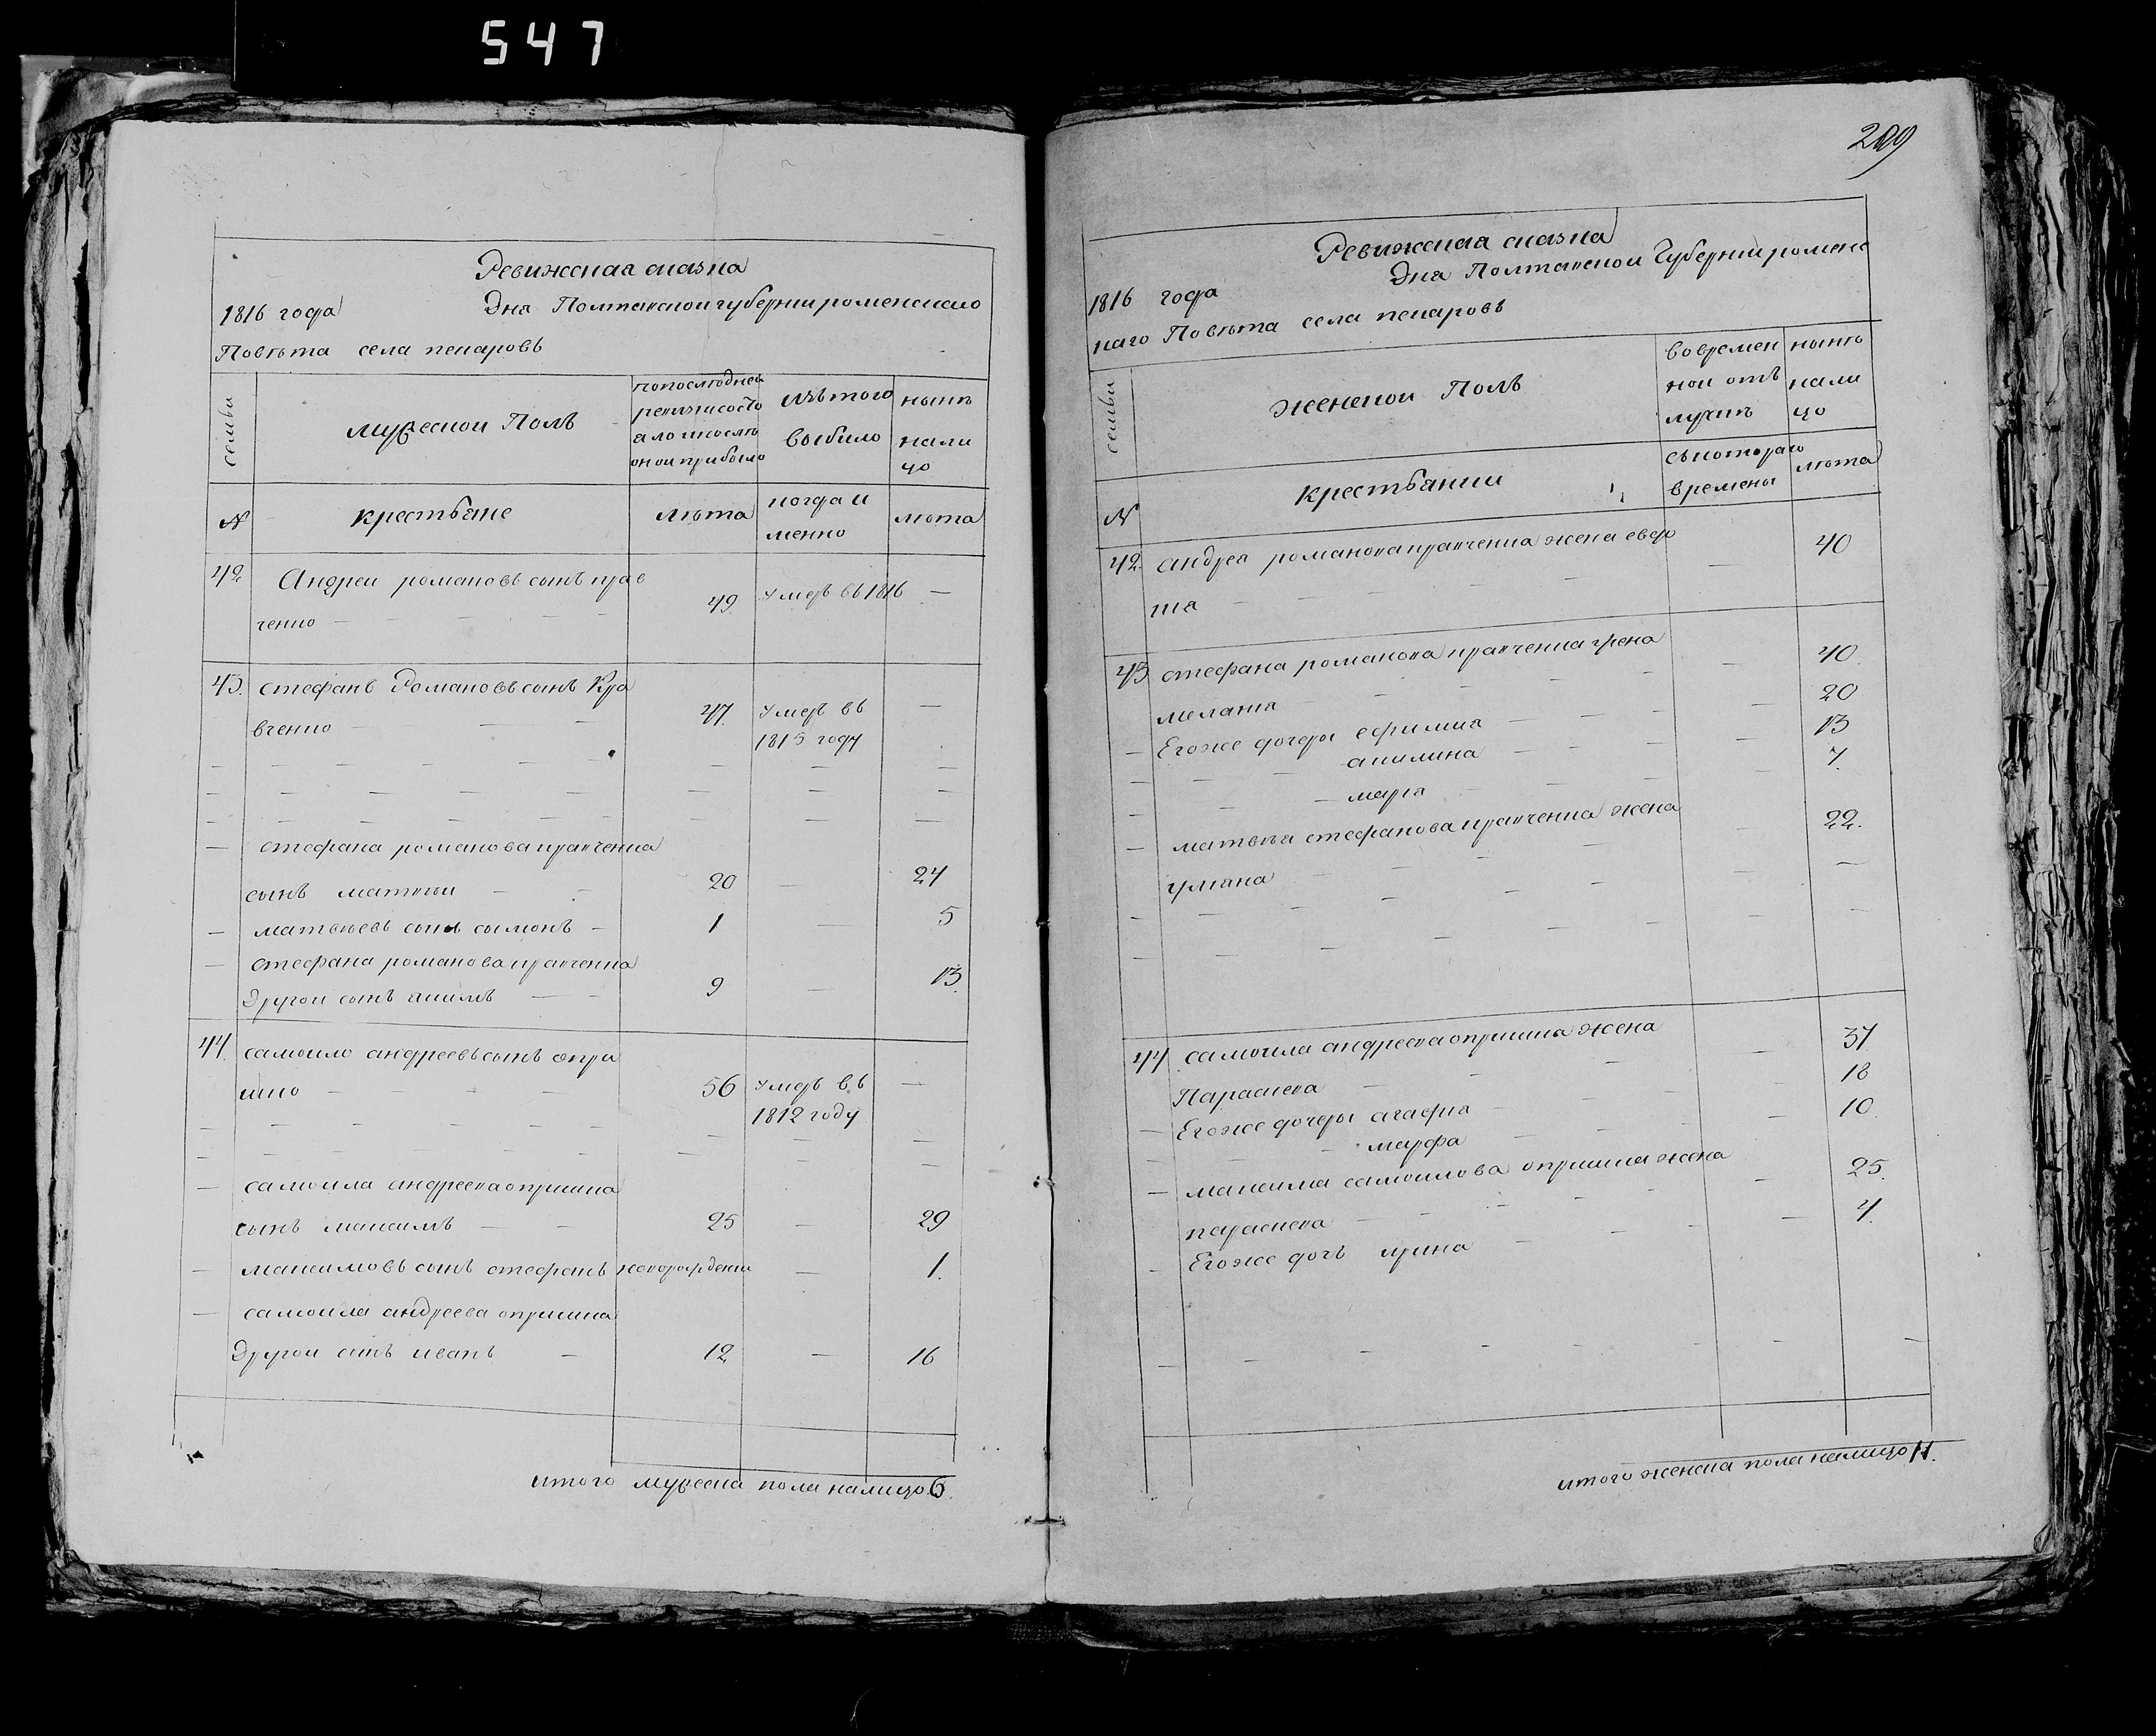 547
Ревижская сказка
1816 года Дня Полтавской губернии роменскаго
Повѣта села пекаровъ
семьи
мужеской Полъ
попослѣдней
ревизиисосто
ало ипослѣ
оной прибыло
изътого
выбыло
нынѣ
нали
цо
№
крестьяне
лѣта
когда и
менно
лѣта
42. Андреи романовъ сынъ крав
ченко 49. умеръ въ 1816
43. стефанъ Романовъ сынъ Кра
вченко 47. умеръ въ
1815 году
стефана романова кравченка
сынъ матвѣи 20 24
матвѣевъ сынъ сымонъ 1 5
стефана романова кравченка
Другои сынъ якимъ 9 13.
44. самоило андреевъ сынъ опри
шко 56 умеръ въ
1812 году
самоила андреева опришка
сынъ максимъ 25 29
максимовъ сынъ стефанъ новорожденъ 1.
самоила андреева опришка
Другои синъ иванъ 12 16
итого мужеска пола налицо 6.
Ревижская сказка
1816 года Дня Полтавской Губернии роменс
каго Повѣта села пекаровъ
семьи
женской Полъ
вовремен
ной отъ
лучкѣ
нынѣ
нали
цо
№
крестьянки
съкотораго
времены
лѣта
42. андрея романова кравченка жена евфр 40
43 стефана романова кравченка жена 40.
мелания
Егоже дочеры ефимия 20
акилина 13
мария 7.
матвѣя стефанова кравченка жена 22.
улияна
44. самоила андреева опришка жена 37
Параскева
Егоже дочеры агафия 18
марфа 10.
максима самоилова опришка жена 25.
параскева
Егоже дочь ирина 4.
итого женска пола налицо 11.